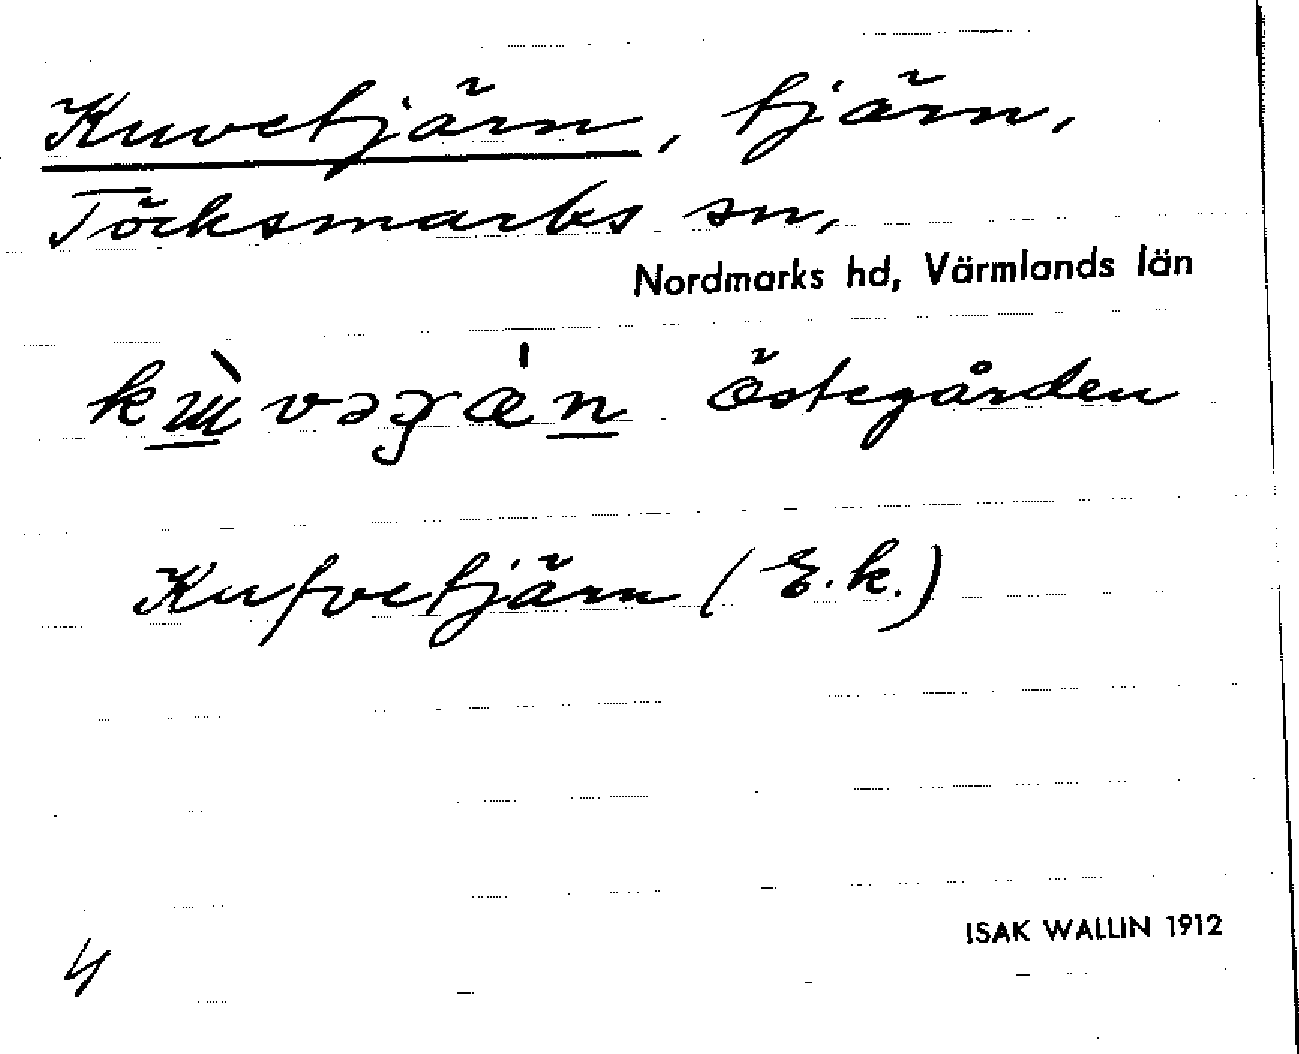 Kuvetjärn, tjärn,
Töcksmarks sn,
Nordmarks hd, Värmlands län
Östegården
Kufvetjärn (E.k.)
ISAK WALLIN 1912
4